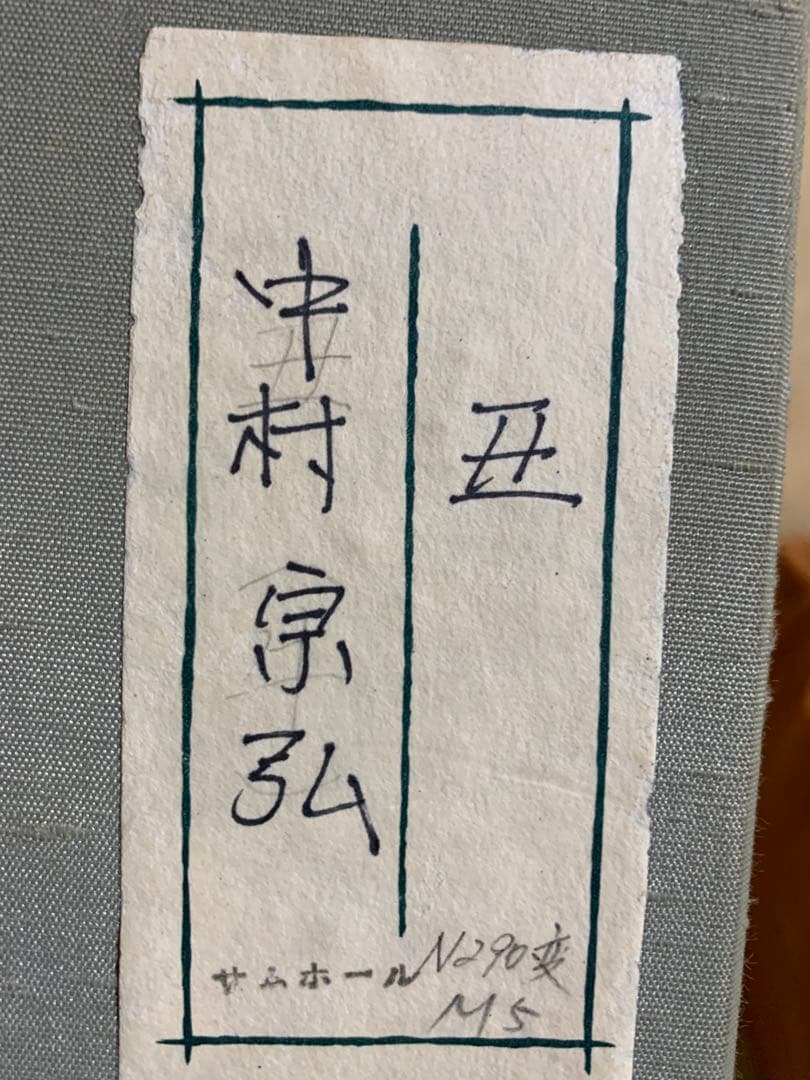 丑
中村宗弘
サムホール N290変
M5